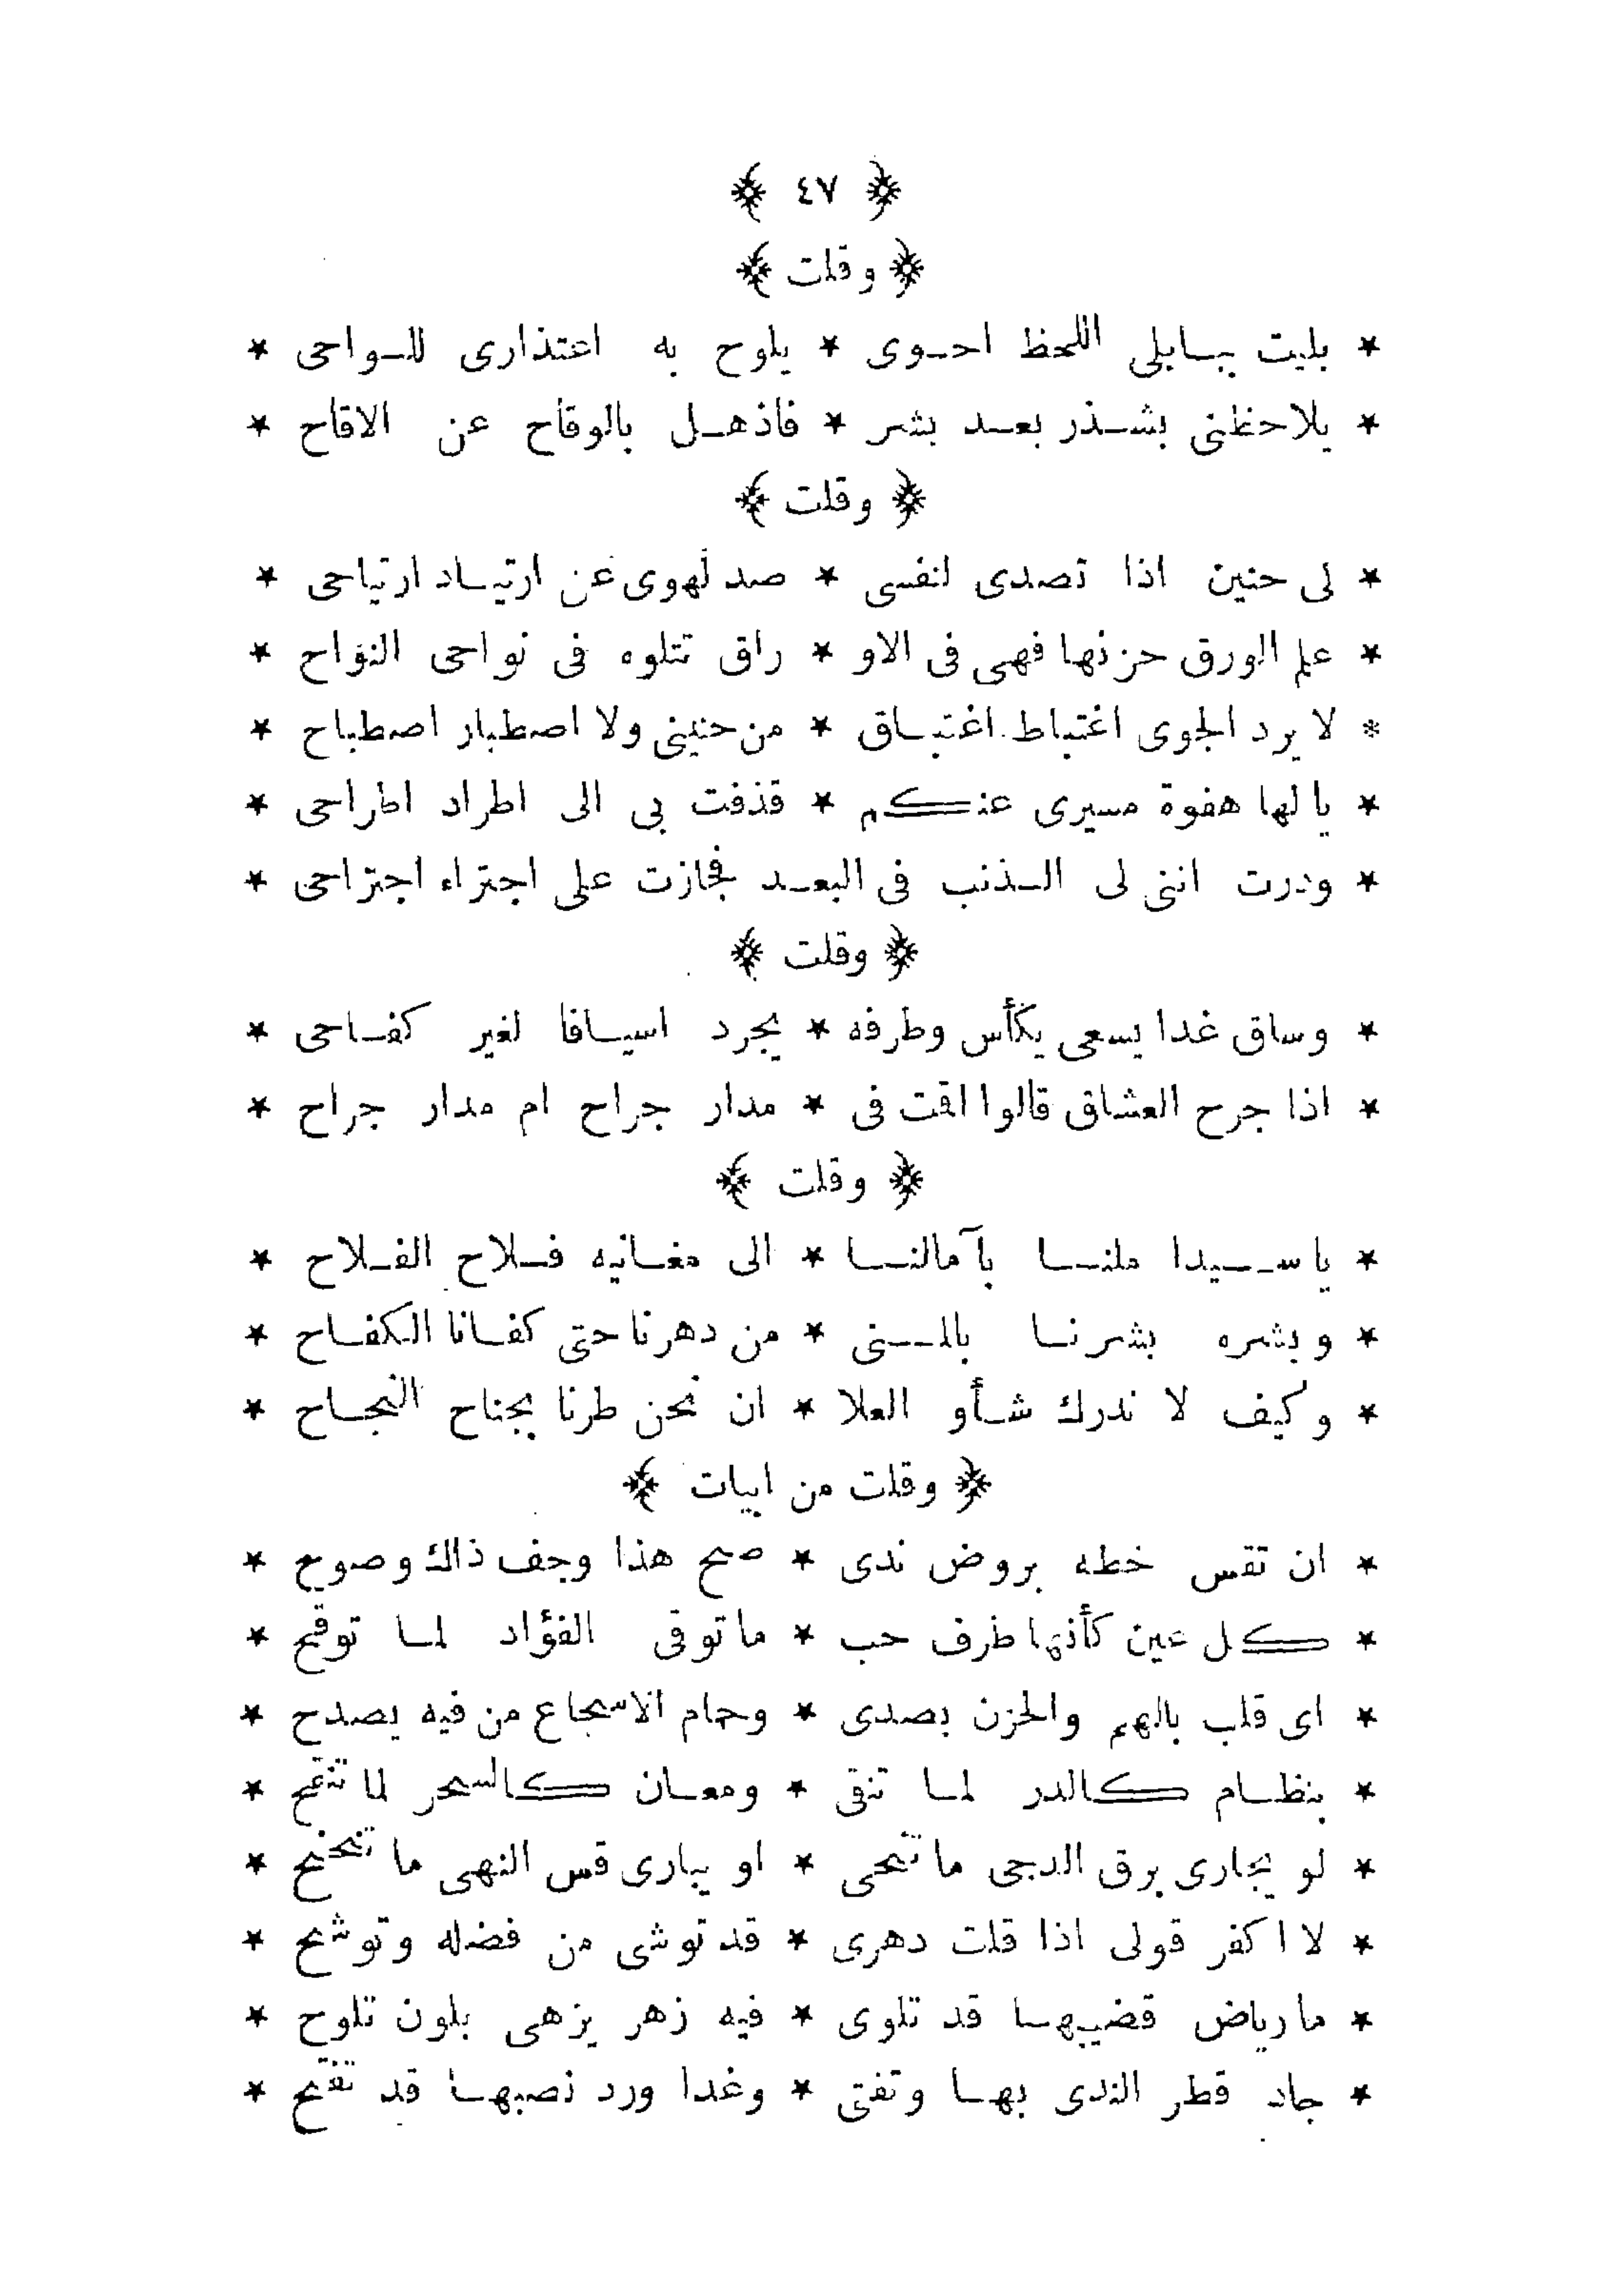 ﴿ ٤٧ ﴾
﴿ وقلت ﴾
* بليت ببابلى اللحظ احوى * يلوح به اعتذارى للواحى *
* يلاحظنى بشذر بعد بشر * فاذهل بالوقاح عن الاقاح *
﴿ وقلت ﴾
* لى حنين اذا تصدى لنفسى * صد لهوى عن ارتياد ارتياحى *
* علم الورق حزنها فهى فى الاو * راق تتلوه فى نواحى النواح *
* لا يرد الجوى اغتباط اغتباق * من حنينى ولا اصطبار اصطباح *
* يا لها هفوة مسيرى عنكم * قذفت بى الى اطراد اطراحى *
* ودرت اننى لى الذنب فى البعد فجازت على اجتراء اجتراحى *
﴿ وقلت ﴾
* وساق غدا يسعى بكأس وطرفه * يجرد اسيافا لغير كفاحى *
* اذا جرح العشاق قالوا اقت فى * مدار جراح ام مدار جراح *
﴿ وقلت ﴾
* يا سيدا ملنا بآمالنا * الى مغانيه فلاح الفلاح *
* وبشره بشرنا بالمنى * من دهرنا حتى كفانا الكفاح *
* وكيف لا ندرك شأو العلا * ان نحن طرنا بجناح النجاح *
﴿ وقلت من ابيات ﴾
* ان تقس خطه بروض ندى * صح هذا وجف ذاك وصوح *
* كل عين كأنها طرف حب * ما توقى الفؤاد لما توقح *
* اى قلب بالهم والحزن يصدى * وحام الاسجاع من فيه يصدح *
* بنظام كالدر لما تنقى * ومعان كالسحر لما تنقح *
* لو يجارى برق الدجى ما تنحى * او يبارى قس النهى ما تنحنح *
* لا اكفر قولى اذا قلت دهرى * قد توشى من فضله وتوشح *
* ما رياض قضيبها قد تلوى * فيه زهر يزهى بلون تلوح *
* جاد قطر الندى بها وتفتى * وغدا ورد نصبها قد تفتح *